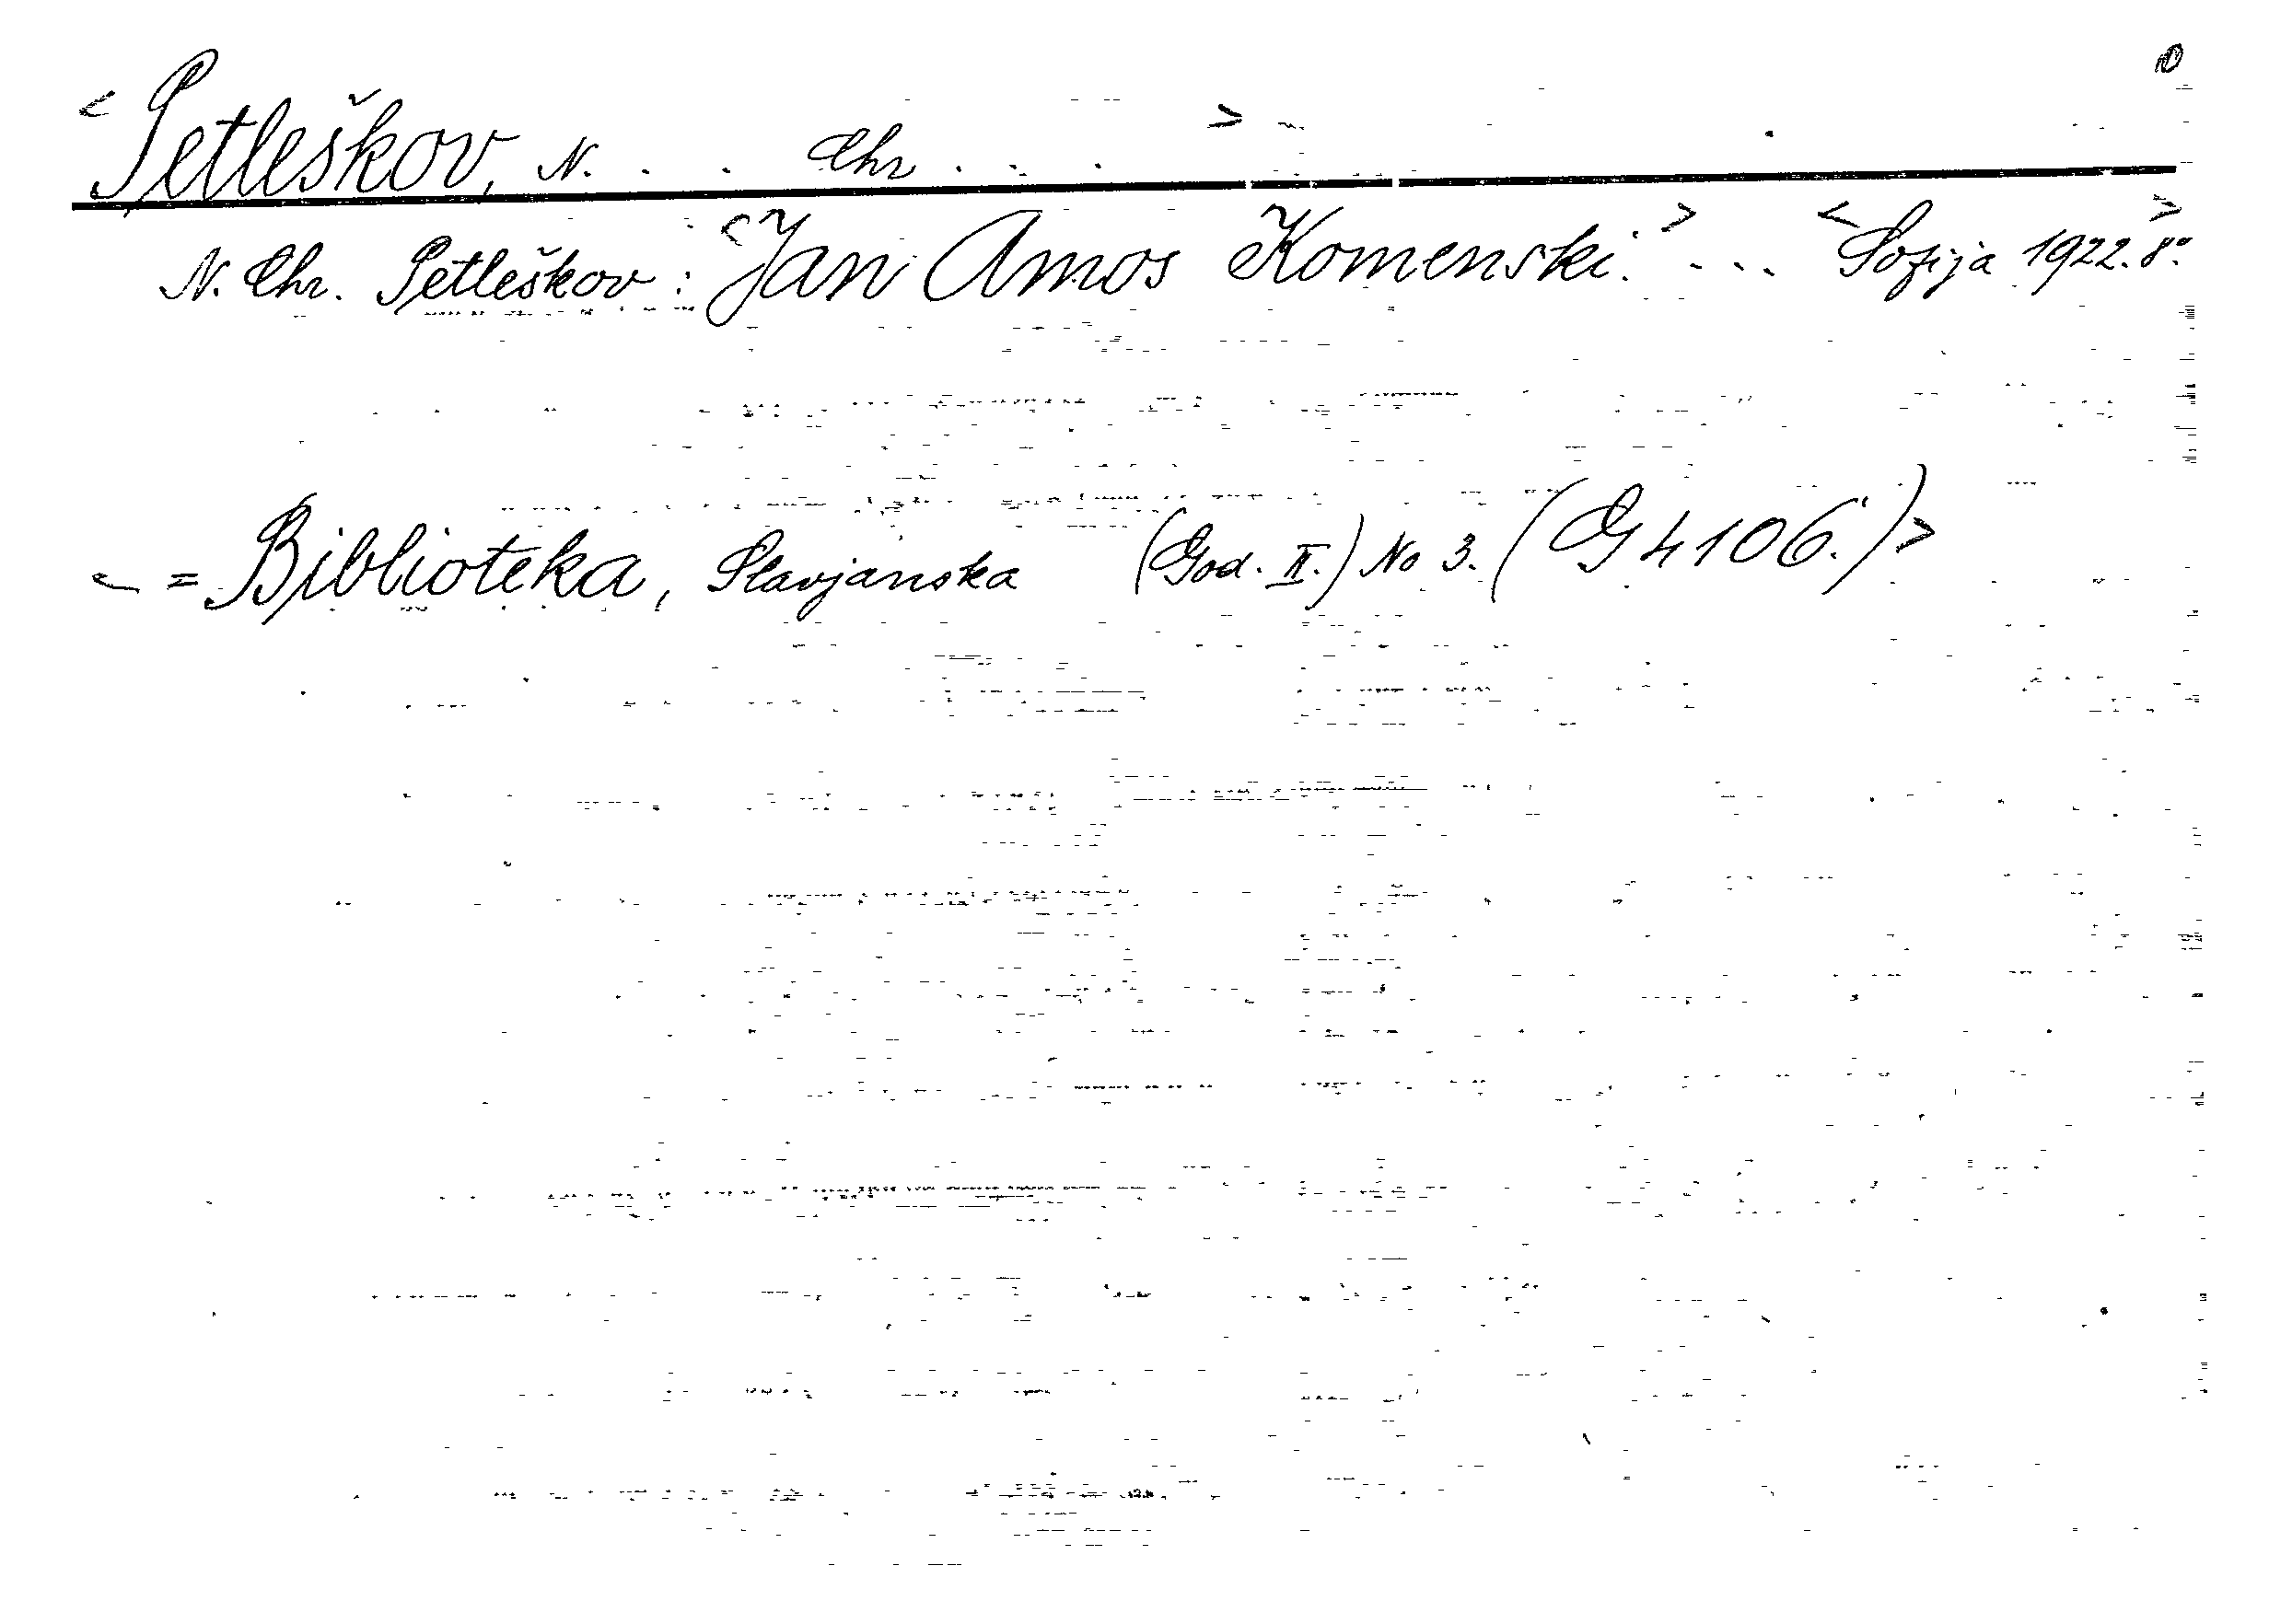 <Petleškov, N. . . Chr . . . >
N. Chr. Petleškov: <Jan Amos Komenski.> ... <Sofija 1922. 8°.>
= Biblioteka, Slavjanska (God. II.) No 3. (G 4106.)>